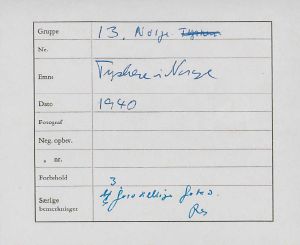 Gruppe 13. Norge
Nr.
Emne Tyskere i Norge
Dato 1940
Fotograf
Neg. opbev.
" nr.
Forbehold
3
Særlige bemærkninger forskellige fotos.